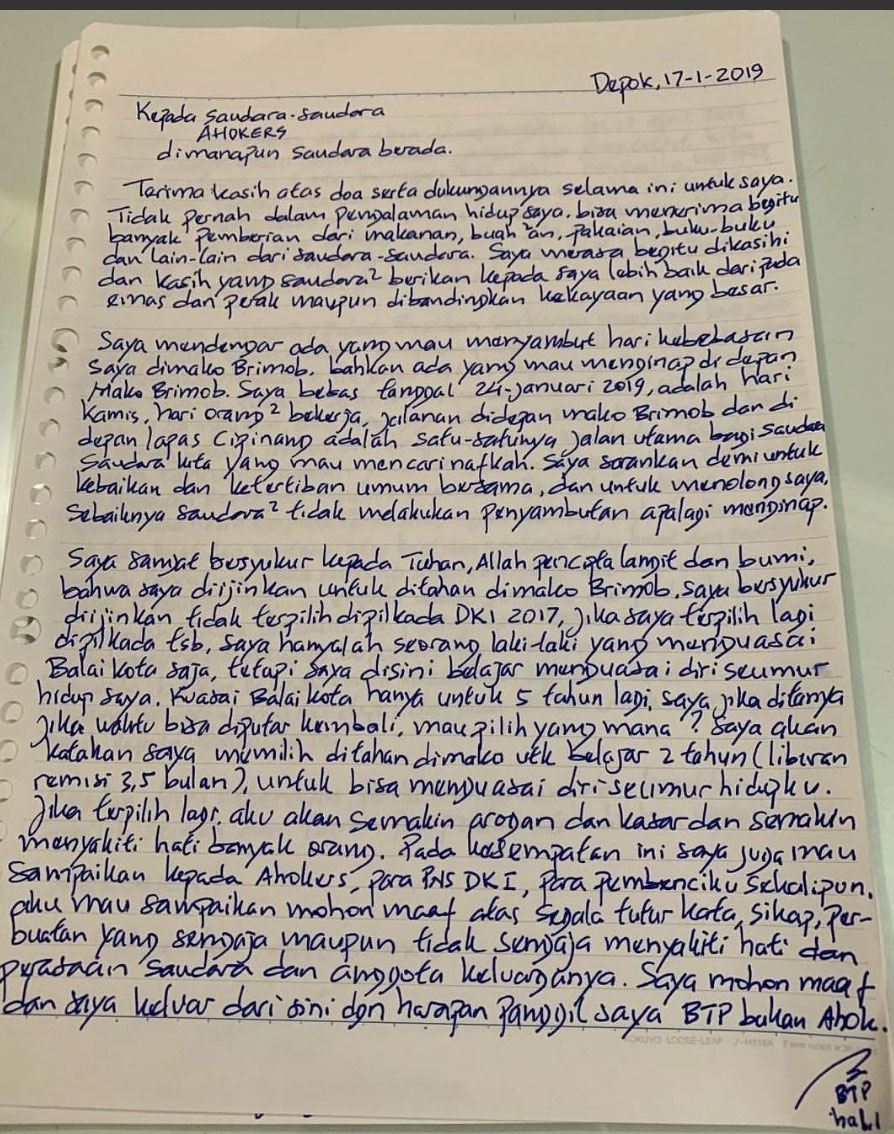 Depok, 17-1-2019
Kepada saudara-saudara
AHOKERS
dimanapun saudara berada.
Terima kasih atas doa serta dukungannya selama ini untuk saya.
Tidak pernah dalam pengalaman hidup saya, bisa menerima begitu
banyak pemberian dari makanan, buah²an, pakaian, buku-buku
dan lain-lain dari saudara-saudara. Saya merasa begitu dikasihi
dan kasih yang saudara² berikan kepada saya lebih baik daripada
emas dan perak maupun dibandingkan kekayaan yang besar.
Saya mendengar ada yang mau menyambut hari kebebasan
saya dimako Brimob, bahkan ada yang mau menginap di depan
Mako Brimob. Saya bebas tanggal 24-januari 2019, adalah hari
kamis, hari orang² bekerja, jalanan didepan mako Brimob dan di
depan lapas Cipinang adalah satu-satunya jalan utama bagi saudara
saudara kita yang mau mencari nafkah. Saya sarankan demi untuk
kebaikan dan ketertiban umum bersama, dan untuk menolong saya,
sebaiknya saudara² tidak melakukan penyambutan apalagi menginap.
Saya sangat bersyukur kepada Tuhan, Allah pencipta langit dan bumi,
bahwa saya diijinkan untuk ditahan dimako Brimob. saya bersyukur
diijinkan tidak terpilih dipilkada DKI 2017, jika saya terpilih lagi
dipilkada tsb, saya hanyalah seorang laki-laki yang menguasai
Balai kota saja, tetapi saya disini belajar menguasai diri seumur
hidup saya. Kuasai Balai kota hanya untuk 5 tahun lagi, saya jika ditanya
jika waktu bisa diputar kembali, mau pilih yang mana? Saya akan
katakan saya memilih ditahan dimako utk belajar 2 tahun (liburan
remisi 3,5 bulan), untuk bisa menguasai diri seumur hidupku.
Jika terpilih lagi, aku akan semakin arogan dan kasar dan semakin
menyakiti hati banyak orang. Pada kesempatan ini saya juga mau
sampaikan kepada Ahokers, para PNS DKI, para pembenciku sekalipun,
aku mau sampaikan mohon maaf atas segala tutur kata, sikap, per-
buatan yang sengaja maupun tidak sengaja menyakiti hati dan
perasaan saudara dan anggota keluarganya. Saya mohon maaf
dan saya keluar dari sini dgn harapan panggil saya BTP bukan Ahok.
KOKUYO LOOSE-LEAF
BTP